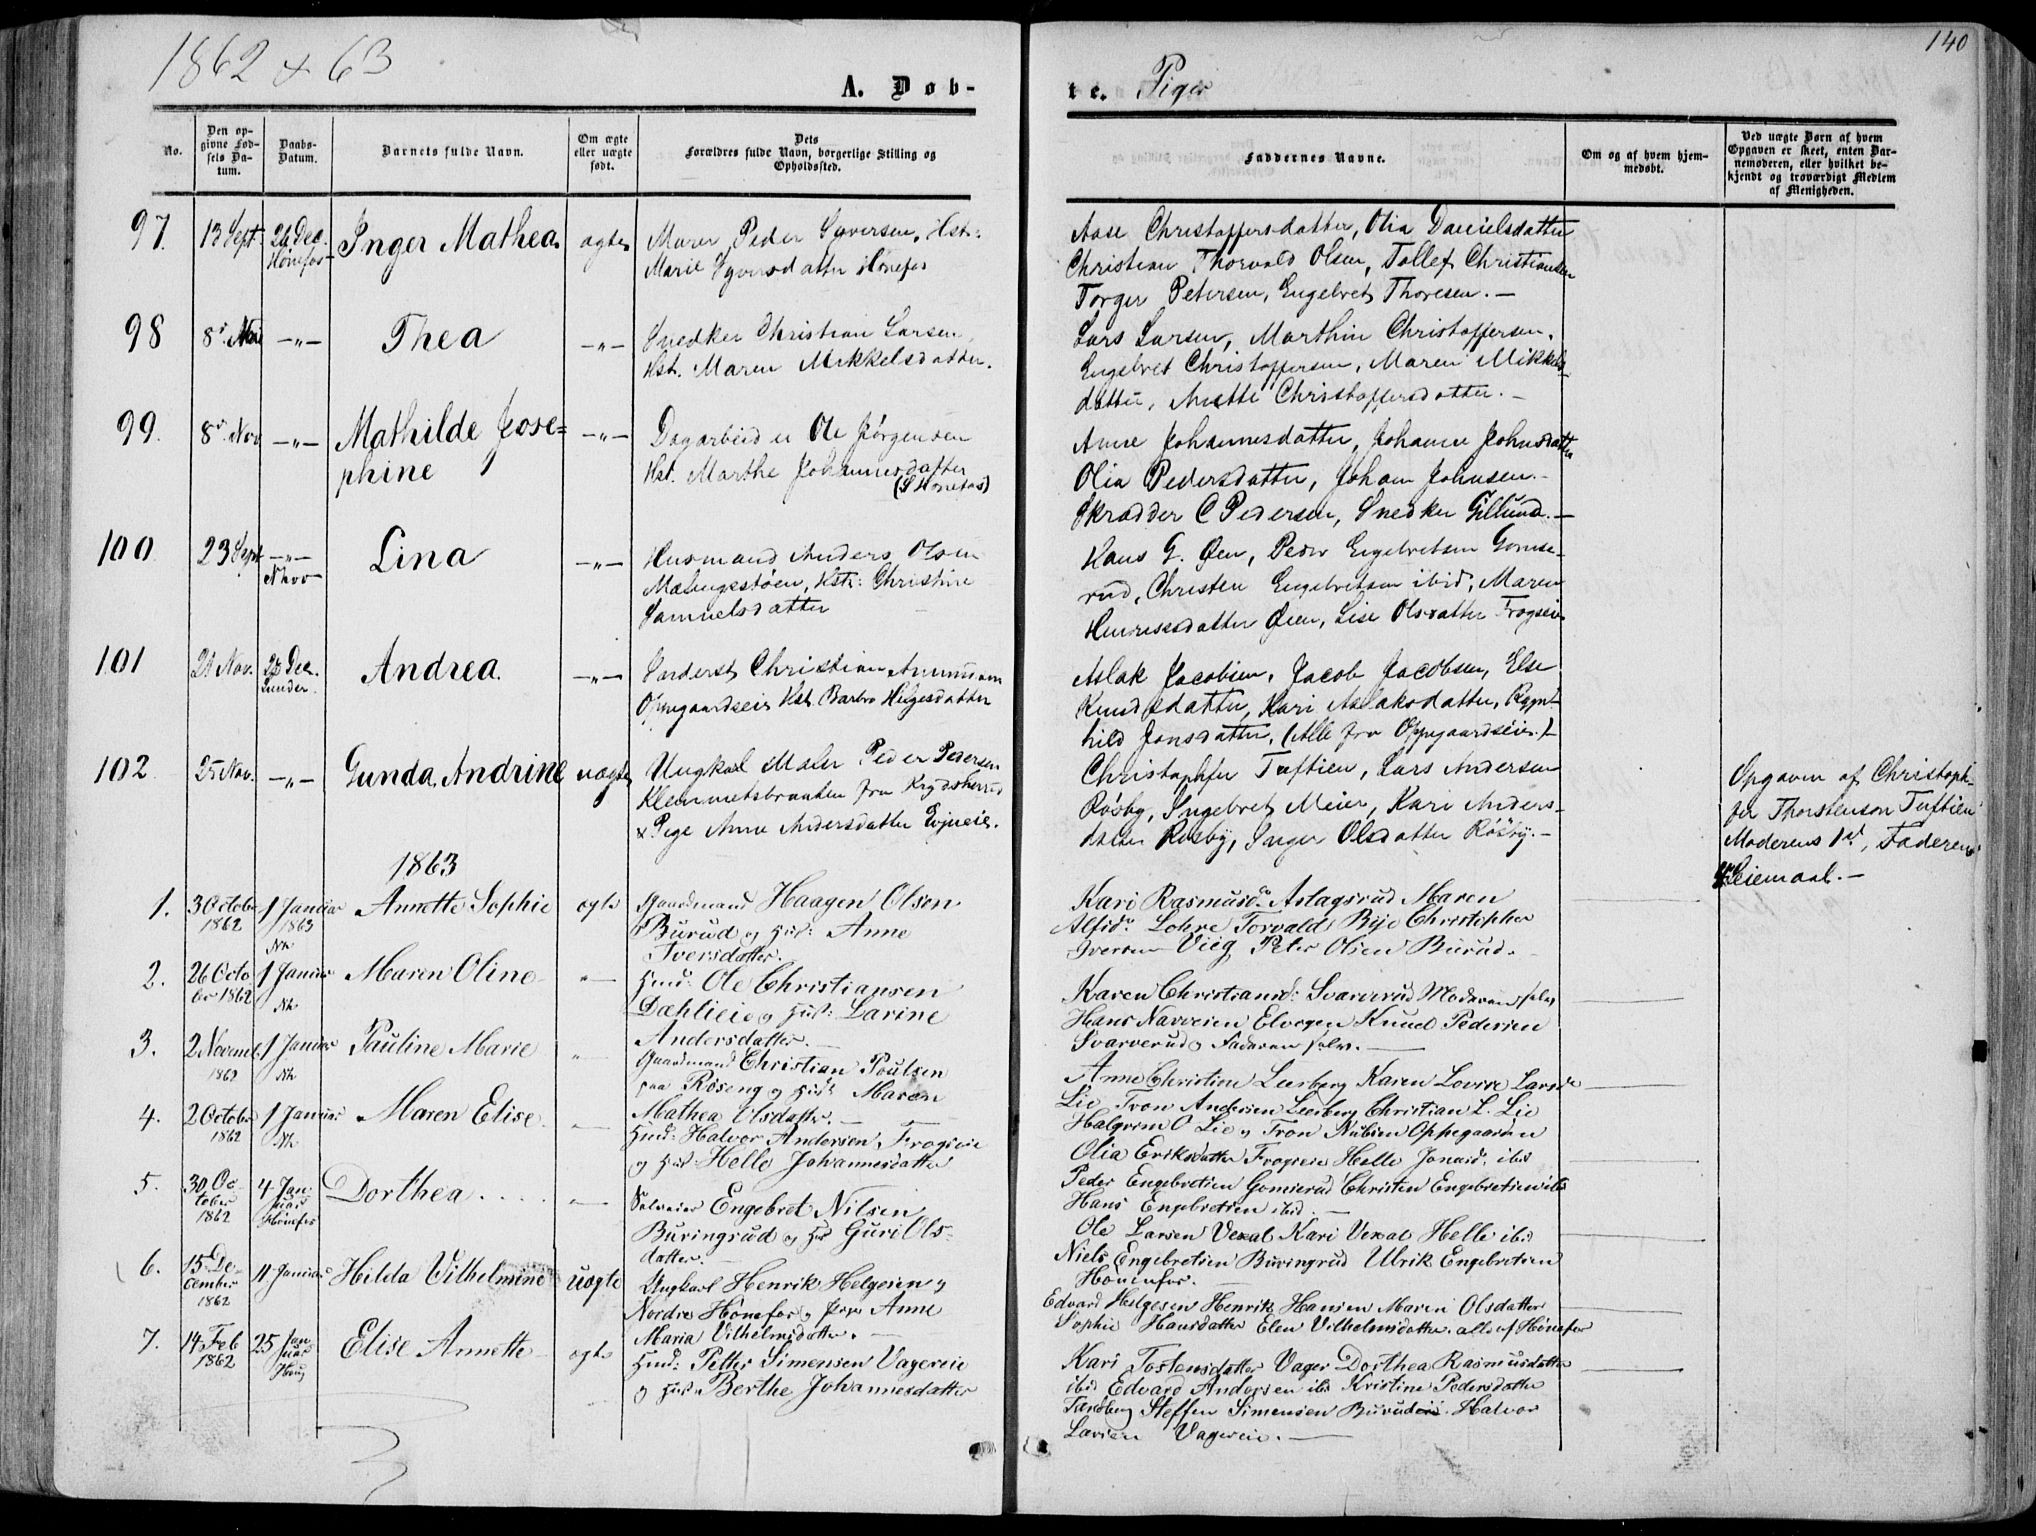 1862 & 63
140
A. Døb-
te. Piger
No.
Den op-
givne Fød-
sels Da-
tum.
Daabs-
Datum.
Barnets fulde Navn.
Om ægte
eller uægte
født.
Dets
Forældres fulde Navn, borgerlige Stilling og
Opholdssted.
Faddernes Navne.
Om og af hvem hjem-
medøbt.
Ved uægte Børn af hvem
Opgaven er skeet, enten Bar-
nemoderen, eller hvilket be-
kjendt og troværdigt Medlem
af Menigheden.
97.
13 Sept.
26 Dec.
Hønefos
Inger Mathea
ægte
Murer Peder Syversen, Hst:
Marie Syversdatter Hønefos
Aase Christoffersdatter, Olia Danielsdatter
Christian Thorvald Olsen, Tollef Christiansen
Torger Petersen, Engebret Thoresen. —
98
8de Nov
—"—
Thea
—"—
Snedker Christian Larsen,
Hst. Maren Mikkelsdatter.
Lars Larsen, Marthin Christoffersen,
Engebret Christoffersen, Maren Mikkels-
datter, Mette Christoffersdatter. —
99.
8de Nov
—"—
Mathilde Jose=
phine
—"—
Dagarbeider Ole Jørgensen
Hst. Marthe Johannesdatter
(S Hønefos)
Anne Johannesdatter, Johanne Johnsdatter
Olia Pedersdatter, Johan Johnsen. -
Skrædder C Pedersen, Snedker Gillund. —
100
23 Sept
—"—
Nhov
Lina
—"—
Husmand Anders Olsen
Malingestøen, Hstr: Christine
Samuelsdatter
Hans G. Øen, Peder Engebretsen Gomse-
rud, Christen Engebretsen ibid, Maren
Henriksdatter Øien, Lise Olsdatter Frogseie
101
21 Nov.
26 Dec.
Lunder.
Andrea.
—"—
Inderst Christian Amundsen
Oppegaardseie Hst. Barbro Helgesdatter
Aslak Jacobsen, Jacob Jacobsen, Else
Knudsdatter, Kari Aslaksdatter, Ragn-
hild Jonsdatter, (Alle fra Oppegaardseie.)
102
25 Nov.
—"—
Gunda Andrine
uægte
Ungkarl Maler Peder Pedersen
Klemmetsbraaten fra Krydsherred
& Pige Anne Andersdatter Evjueie.
Christopher Tuftien, Lars Andersen
Røsby, Ingebret Meier, Kari Anders-
datter Røsby, Inger Olsdatter Røsby. —
Opgaven af Christoph-
fer Thorstensen Tuftien
Moderens 1st, Faderens
Leiemaal. —
1863
1.
3 October
1862
1 Januar
1863
Nh
Annette Sophie
ægte
Gaardmand Haagen Olsen
Burud og Hust: Anne
Iversdatter.
Kari Rasmusd: Aslagsrud Maren
Alfsdr Lohre Torvald Bye Christopher
Iversen Viig Peter Olsen Burud.
2.
26 Octo
ber 1862
1 Januar
Nh
Maren Oline
"
Husm: Ole Christiansen
Dæhlieie og Hust: Larine
Andersdatter. —
Karen Christiansd: Svarverud Moderen selv
Hans Narveien Elvegen Knud Pedersen
Svarverud og Faderen selv. —
3.
2 Novembr
1862
1 Januar
Nh
Pauline Marie
"
Gaardmand Christian Poulsen
paa Røseng og Hust: Maren
Mathea Olsdatter. —
Anne Christine Leerberg Karen Lovise Larsdr
Lie Tron Andersen Leerberg Christian L. Lie
Halgrim O Lie og Tron Nubsen Oppegaarden
4.
2 October
1862
1 Januar
Nh
Maren Elise
"
Husm: Halvor Andersen, Frogseie
og Hust: Helle Johannesdatter
Olia Eriksdatter Frogseie Helle Jonasd: ibid
Peder Engebretsen Gomserud Christen Engebretsen ibid
Hans Engebretsen ibid. —
5.
30 Oc-
tober
1862
4 Jan-
uar
Hønefos
Dorthea . . . .
"
Selveier Engebret Nilsen
Buringrud og Hust Guri Ols-
datter. —
Ole Larsen Vexal Kari Vexal Helle ibid
Niels Engebretsen Buringrud Ulrik Engebretsen
Hønefos. —
6.
15 De-
cember
1862
11 Januar
Hilda Vilhelmine
uægte
Ungkarl Henrik Helgesen og
Nordre Hønefos og Pige Anne
Maria Vilhelmsdatter. —
Edvard Helgesen Henrik Hansen Maren Olsdatter
Sophie Hansdatter Elen Vilhelmsdatter alle af Hønefos
7.
14 Feb
1862
25 Jan
uar
Houg
Elise Annette
ægte
Husm: Petter Simensen Vagereie
og Hust: Berthe Johannesdatter
Kari Tostensdatter Vager Dorthea Rasmusdatter
ibid Edvard Andersen ibid Kristine Pedersdatter
Færdberg Steffen Simensen Burudeie. Halvor
Larsen Vagereie. —